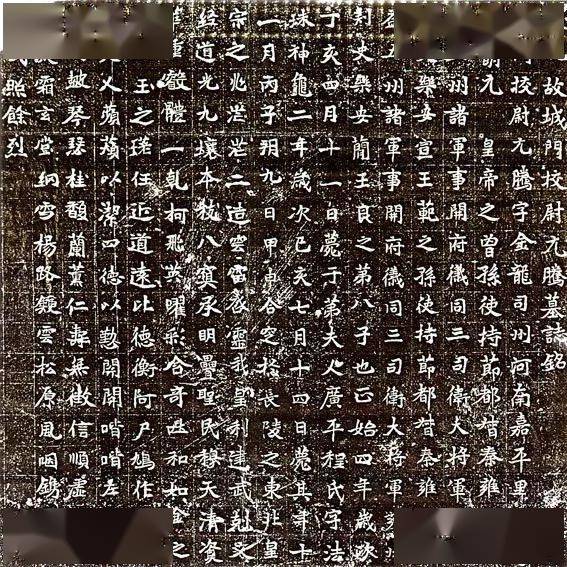 故城門校尉元騰墓誌銘
校尉元騰字金龍司州河南嘉平里
明元皇帝之曾孫使持節都督秦雍
州諸軍事開府儀同三司衛大將軍
樂安宣王範之孫使持節都督秦雍
州諸軍事開府儀同三司衛大將軍
樂安簡王良之第八子也正始四年歲次
丁亥四月十一日薨于第夫人廣平程氏字法
珠神龜二年歲次己亥七月十四日薨其年十
一月丙子朔九日甲申合窆於長陵之東北皇
宗之兆茫茫二造雲雷啟靈我皇利建武剋文
經道光九壤本枝八冥承明疊聖民穆天清資
啟體一氣柯飛英曜彩合奇世和如金之
玉之瑤任近道遠比德衡阿尸鳩作
人蘋蘩以潔四德以懃閨閫喈喈左
琴瑟桂馥蘭薰仁壽無徵信順虛
霜玄堂絅雪楊路鏁雲松原風咽鐫
照餘烈